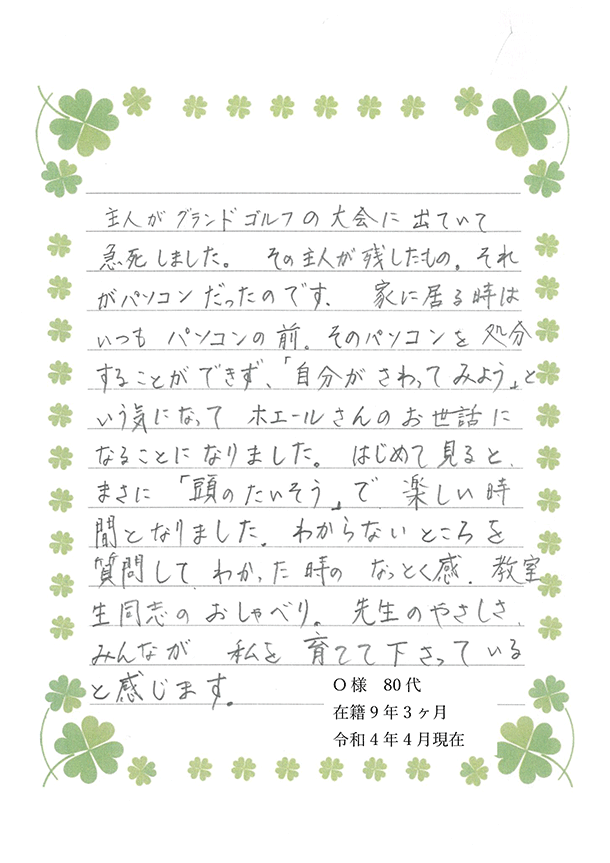 主人がグランドゴルフの大会に出ていて
急死しました。その主人が残したもの。それ
がパソコンだったのです、家に居る時は
いつもパソコンの前。そのパソコンを処分
することができず、「自分がさわってみよう」と
いう気になってホエールさんのお世話に
なることになりました。はじめて見ると、
まさに「頭のたいそう」で楽しい時
間となりました。わからないところを
質問してわかった時のなっとく感。教室
生同志のおしゃべり。先生のやさしさ、
みんなが私を育てて下さっている
と感じます。
O様 80代
在籍9年3ヶ月
令和4年4月現在